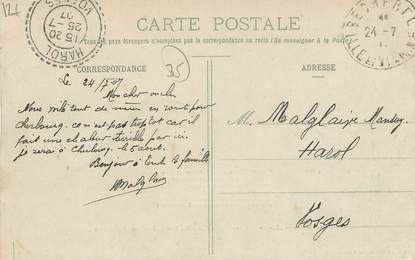 124
CARTE POSTALE
Tous les pays étrangers n'acceptent pas la correspondance au recto (Se renseigner à la Poste)
HAROL
VOSGES
15 20
25 - 7
07
24 - 7
ILLE-ET-VILAINE
CORRESPONDANCE
35
ADRESSE
Le 24/7/07
Mon cher oncle
Nous voilà tout de même en route pour
cherbourg. ce n'est pas trop tot car il
fait une chaleur terrible par ici.
je serai à Cherbourg le 5 aout.
Bonjour à toute la famille
Malglaive
M. Malglaive
Harol
Vosges